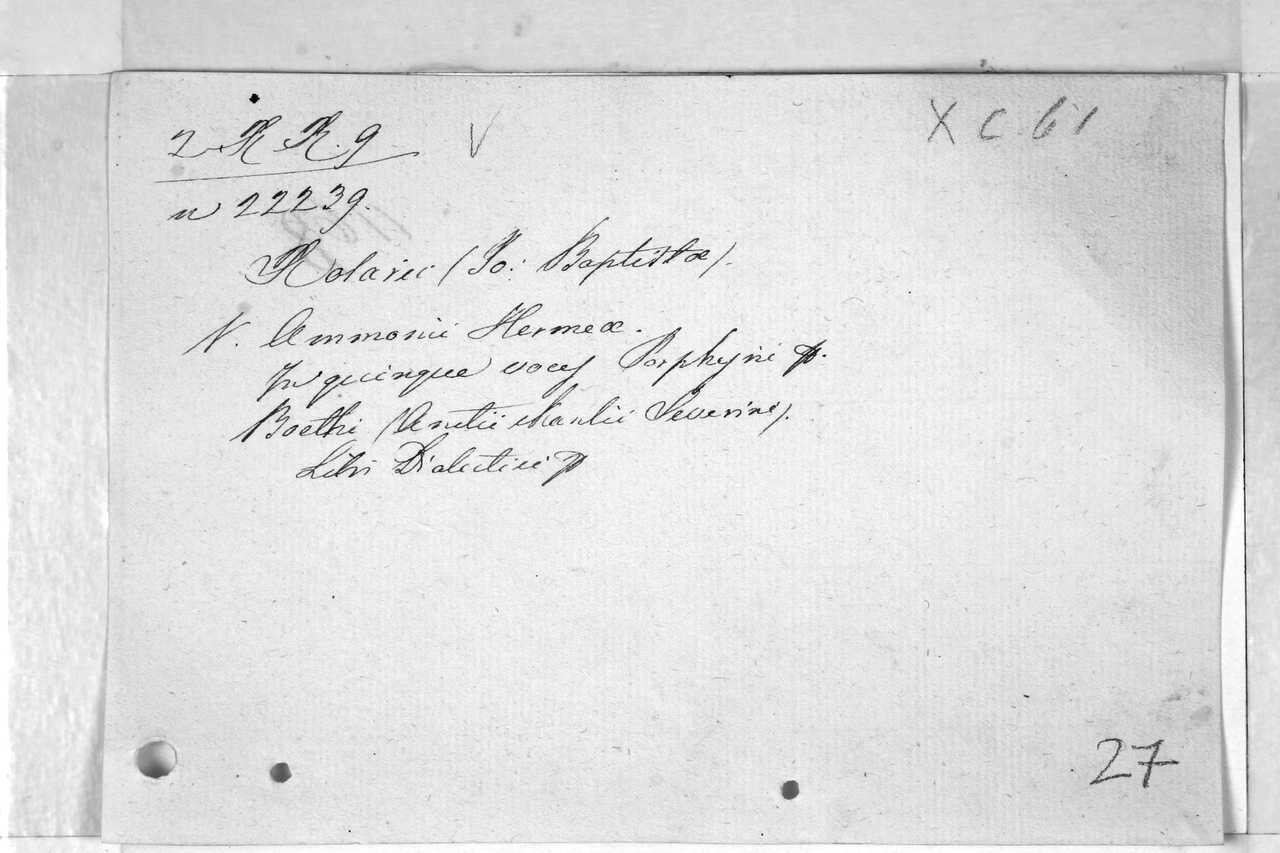 2. R R. 9 V X C 61
n 22239.
Rolarii (Jo: Baptistæ).
V. Ammonii Hermeæ.
In quinque voces Porphyrii p.
Boethi (Anitii Manlii Severini).
Libri Dialectici p
27